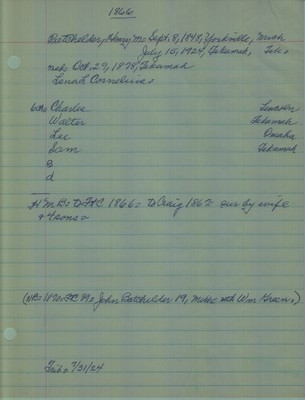 1866
Batchelder, Henry M= Sept. 8, 1848, Yorkville, Mich
July 15, 1924, Tekamah, Neb=
m= Oct. 29, 1878, Tekamah
Lena L Cornelius=
Charlie Lincoln
Walter Tekamah
Lee Omaha
Sam Tekamah
B
d
H M B= to 1866= to Craig 186 sur by wife
+ 4 sons=
1870= 79= John Batchelder 19, Mich= with Wm Green=)
Trib= 7/31/24